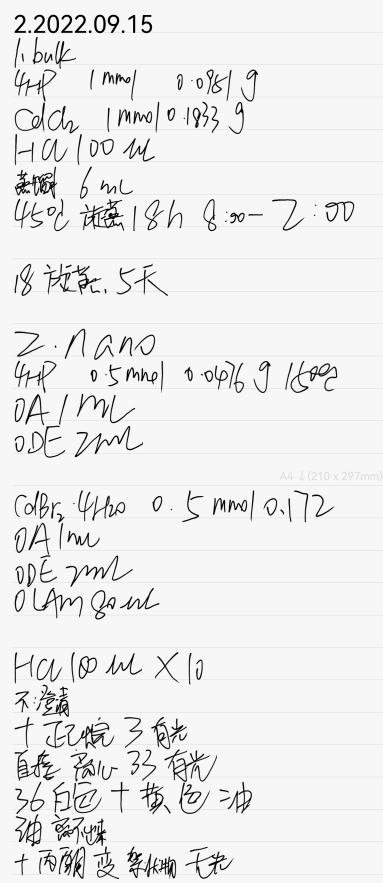 2.2022.09.15
1. bulk
4HP 1 mmol 0.0951 g
CdCl2 1 mmol 0.1833 g
HCl 100 uL
6 mL
45℃ 旋蒸 18h 8:00-2:00
18 旋蒸, 5天
2. nano
4HP 0.5 mmol 0.0476 g 150℃
OA 1 mL
ODE 2mL
A4 ↓(210 x 297mm)
CdBr2·4H2O 0.5 mmol 0.172
OA 1mL
ODE 2mL
OLAM 80 uL
HCl 100 uL ×10
不澄清
+ 正己烷 3 有光
直接 离心 33 有光
36 白色 + 黄色油
油 离不出来
+ 丙酮 变 絮状物 无光